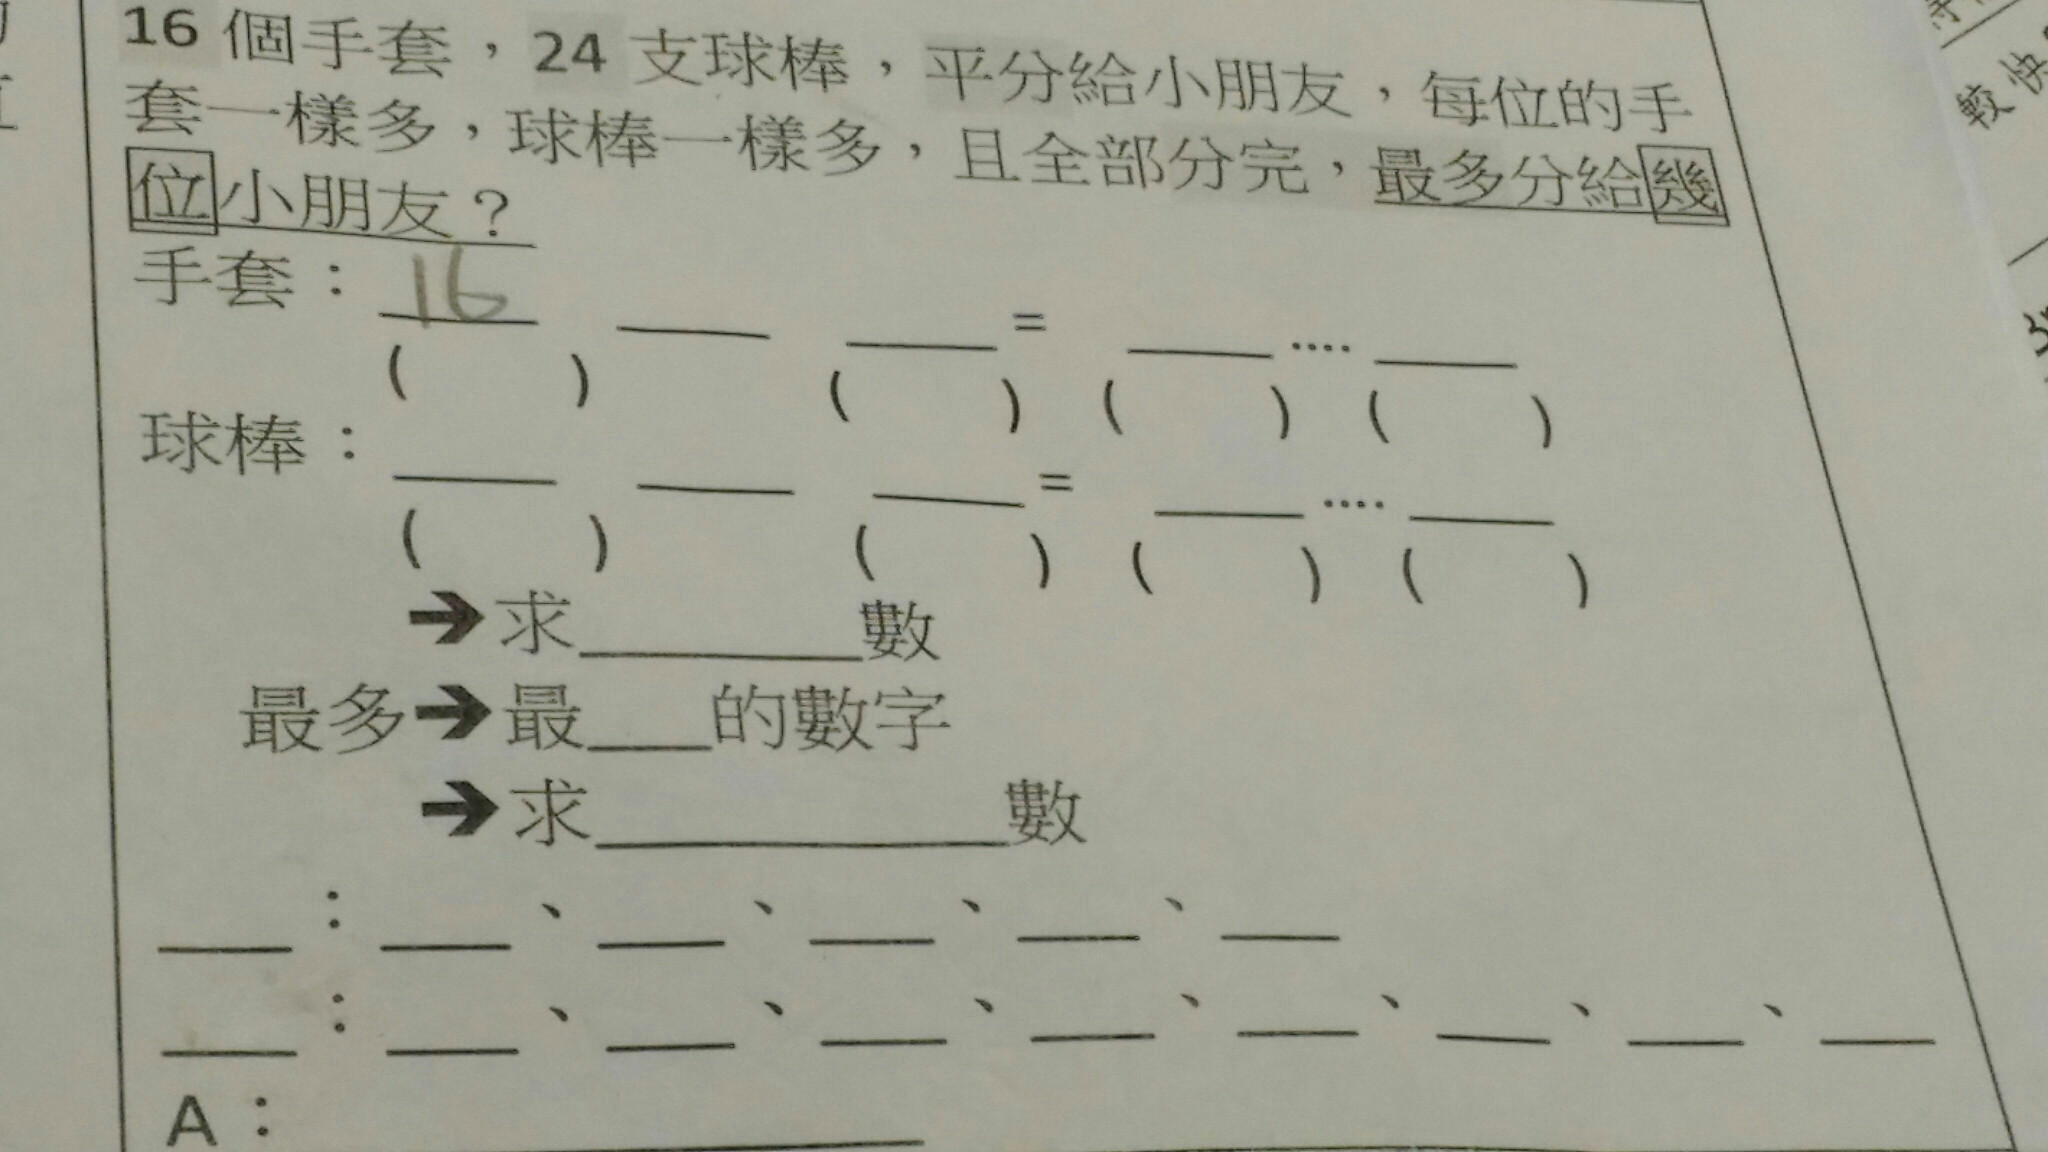 16 個手套，24 支球棒，平分給小朋友，每位的手
套一樣多，球棒一樣多，且全部分完，最多分給幾
位小朋友？
手套：16 ____ ____ = ____ .... ____
( ) ( ) ( ) ( )
球棒：____ ____ ____ = ____ .... ____
( ) ( ) ( ) ( )
➔求________數
最多➔最___的數字
➔求____________數
____：____、____、____、____、____
____：____、____、____、____、____、____、____、____
A：____________
較快